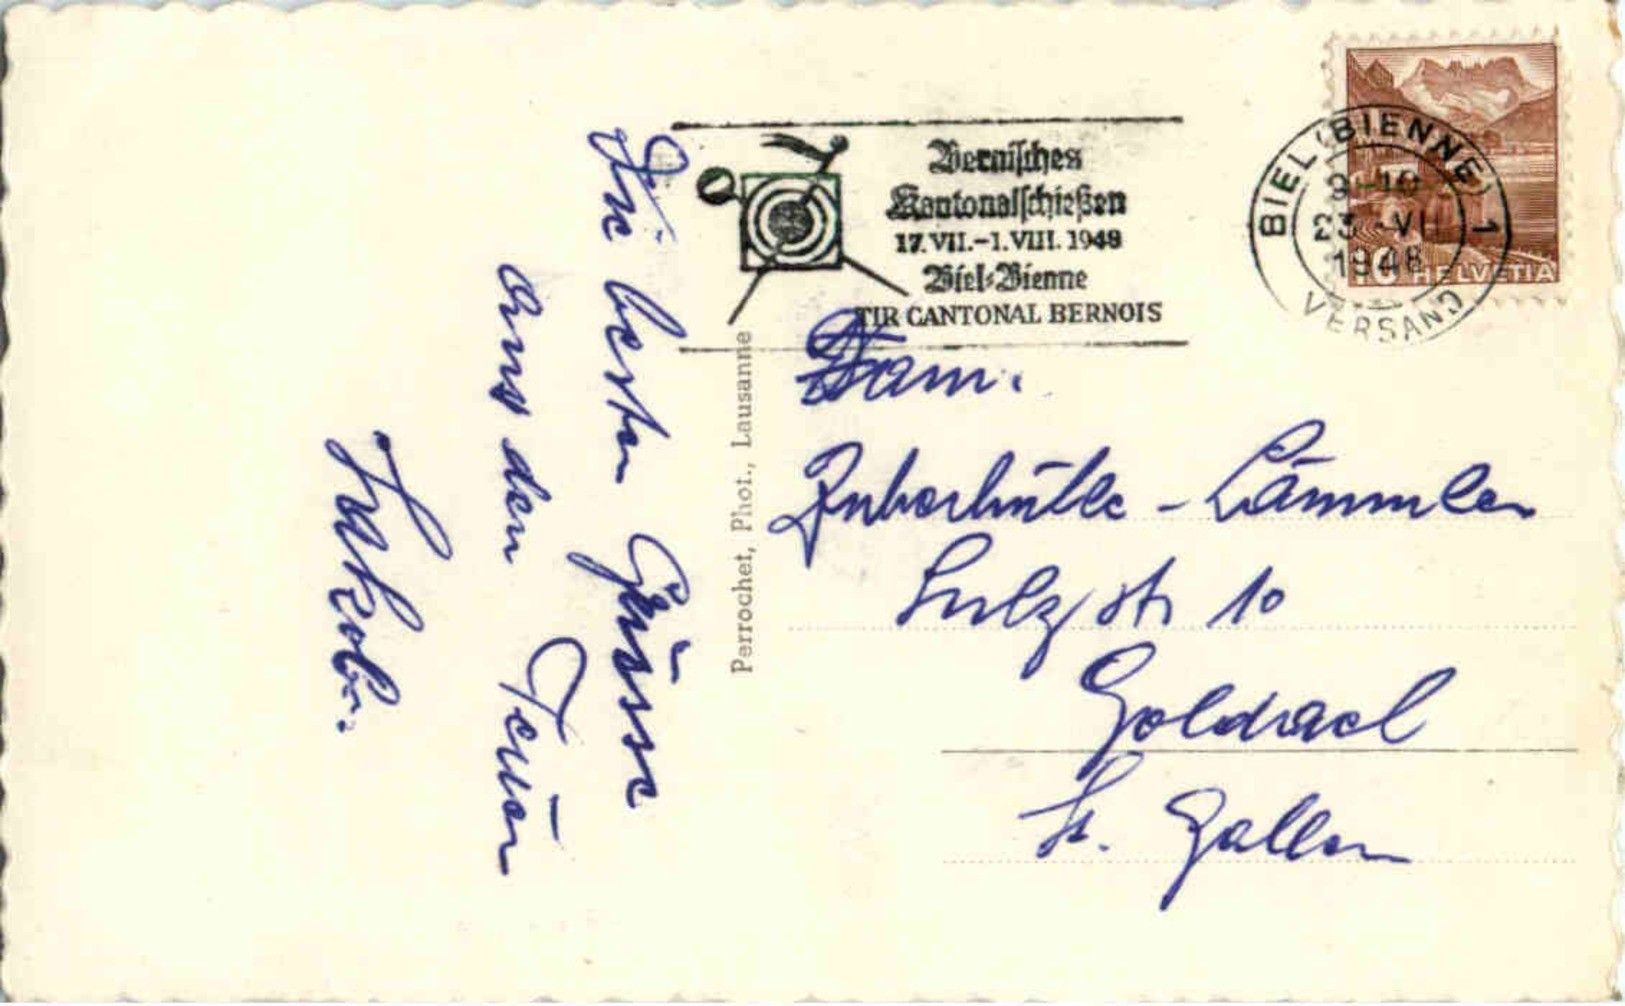 Die besten Grüsse
aus den
Jakob.
Perrochet, Phot., Lausanne
Bernisches
Kantonalschießen
17. VII.-1. VIII. 1948
Biel-Bienne
TIR CANTONAL BERNOIS
BIEL (BIENNE) 1
9-10
23.-VII
1948
VERSAND
10 HELVETIA
Fam.
Zuberbühler - Lämmler
Sulzstr 10
Goldach
St. Gallen